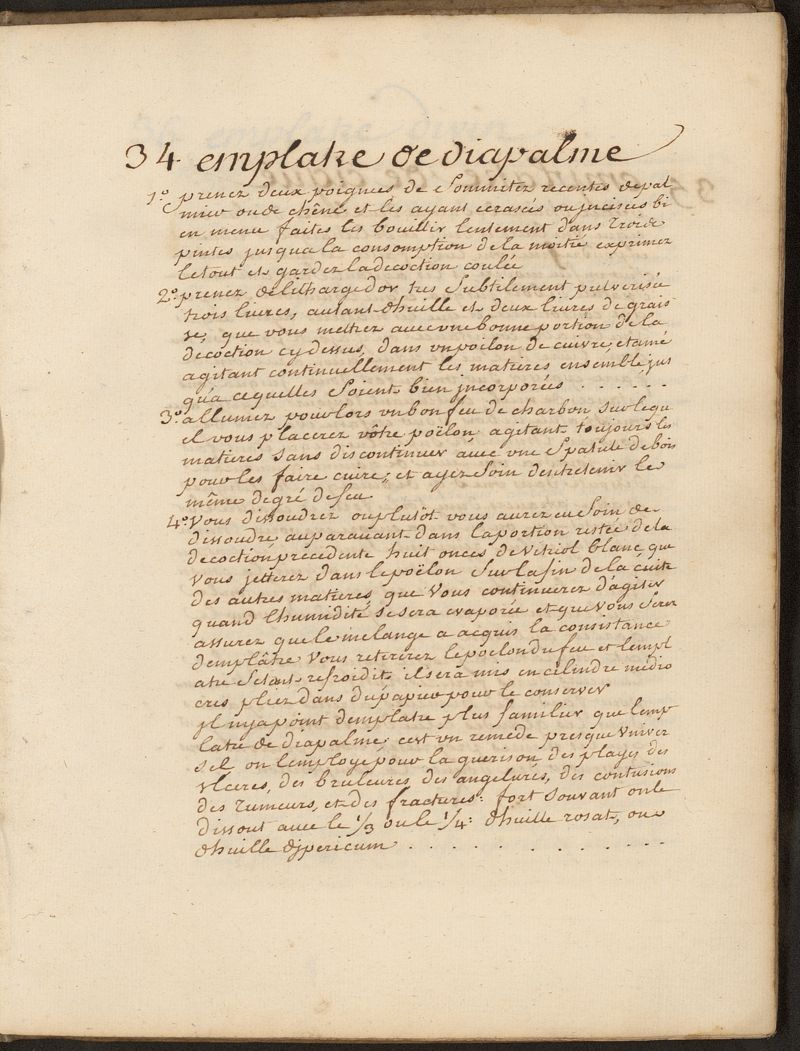 34 emplatre de diapalme
1.° prenez deux poignées de Sommitez recentes depal
mier oude chêne et les ayant ecrasées ou jncisées bi
en menu faites les bouillir lentement dans Trois
pintes jusqua la consomption de la moitié exprimez
letout et gardez la decoction coulée
2.° prenez delitharge dor tres Subtilement pulverisée
trois livres, autant dhuille et deux livres de grais
se, que vous mettrez avec vne bonne portion de la
decoction cy dessus, dans vn poëlon de cuivre, etamé
agitant continuellement les matieres ensemble jus
qua cequelles Soient bien jncorporées . . . . . .
3.° allumez pour lors vn bon feu de charbon sur lequ
el vous placerez vôtre poëlon agitant toujours les
matieres sans discontinuer avec vne Spatule de bois
pour les faire cuire, et ayez Soin dentretenir le
même degré de feu
4.° Vous dissoudrez ou plutôt vous aurez eu Soin de
dissoudre auparavant dans la portion restée de la
decoction precedente huit onces de Vitriol blanc, que
Vous jetterez dans le poëlon Sur la fin de la cuite
des autres matieres, que Vous continuerez d'agiter
quand lhumidité se sera evaporée et que vous Serez
assurez que le melange a acquis la consistance
demplâtre Vous retirerez le poelon du feu et lempl
atre Setant refroidit, il sera mis en cilindre medio
cres pliez dans du papier pour le conserver
jl nya point demplatre plus familier que lemp
latre de diapalme, cest vn remede presque Vniver
sel on lemploye pour la guerison des playes des
vlceres, des bruleures, des angelures, des contusions
des Tumeurs, et des fractures: fort souvant on le
dissout avec le 1/3 ou le 1/4: dhuille rosat, ou
dhuille djpericum . . . . . . . . . . .